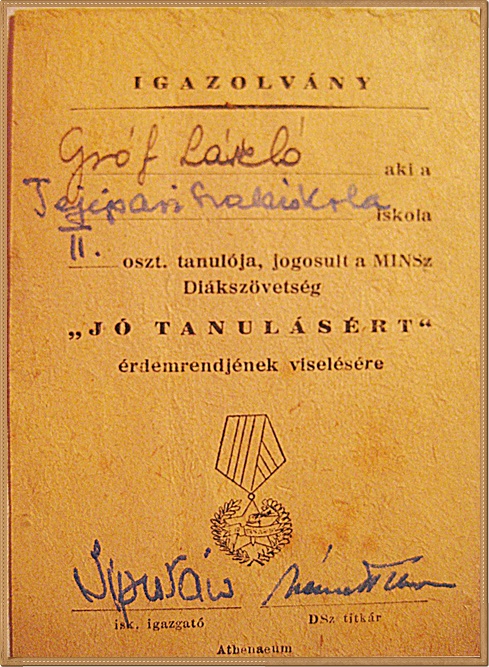 IGAZOLVÁNY
Gróf László aki a
Tejipari Szakiskola iskola
II. oszt. tanulója, jogosult a MINSz
Diákszövetség
„JÓ TANULÁSÉRT“
érdemrendjének viselésére
isk. igazgató DSz titkár
Athenaeum